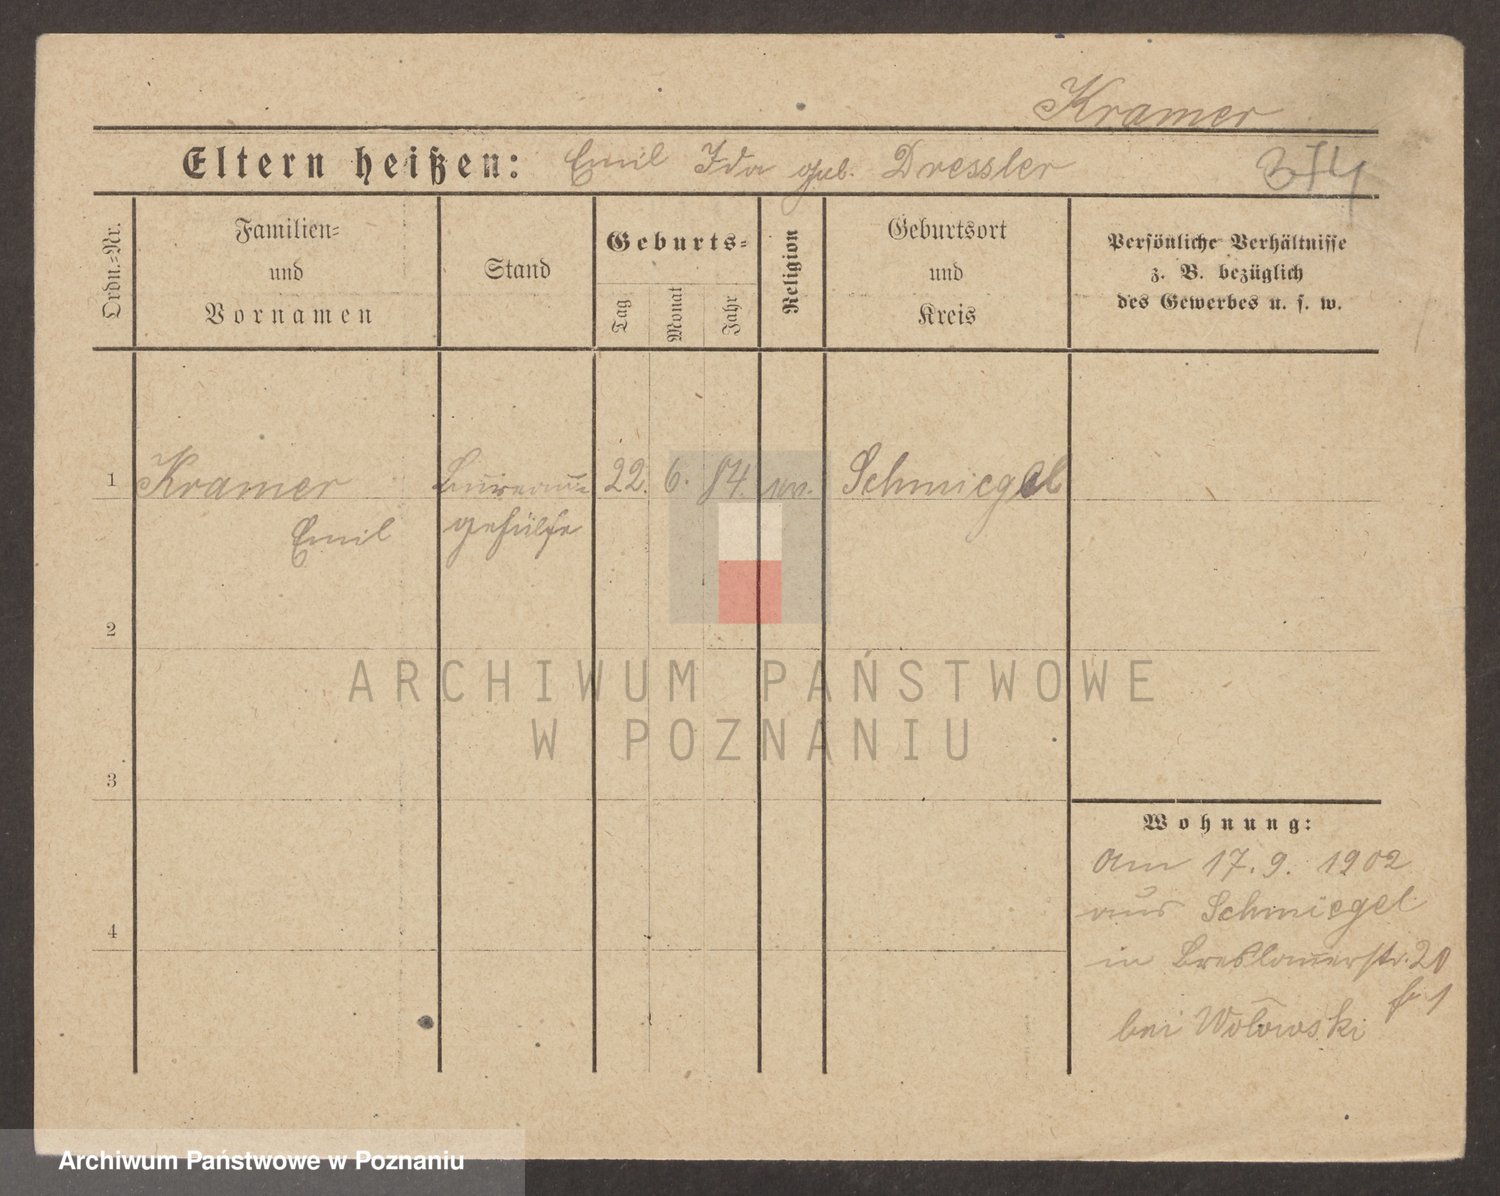 Kramer
Eltern heißen: Emil Ida geb. Dressler
374
Ordn.-Nr.
Familien-
und
Vornamen
Stand
Geburts-
Tag
Monat
Jahr
Religion
Geburtsort
und
Kreis
Persönliche Verhältnisse
z. B. bezüglich
des Gewerbes u. s. w.
1 Kramer Bureau- 22. 6. 84. ev. Schmiegel
Emil gehülfe
2
ARCHIWUM PAŃSTWOWE
W POZNANIU
3
Wohnung:
Am 17.9. 1902
aus Schmiegel
4
in Breslauerstr. 20
bei Wolowski
Archiwum Państwowe w Poznaniu